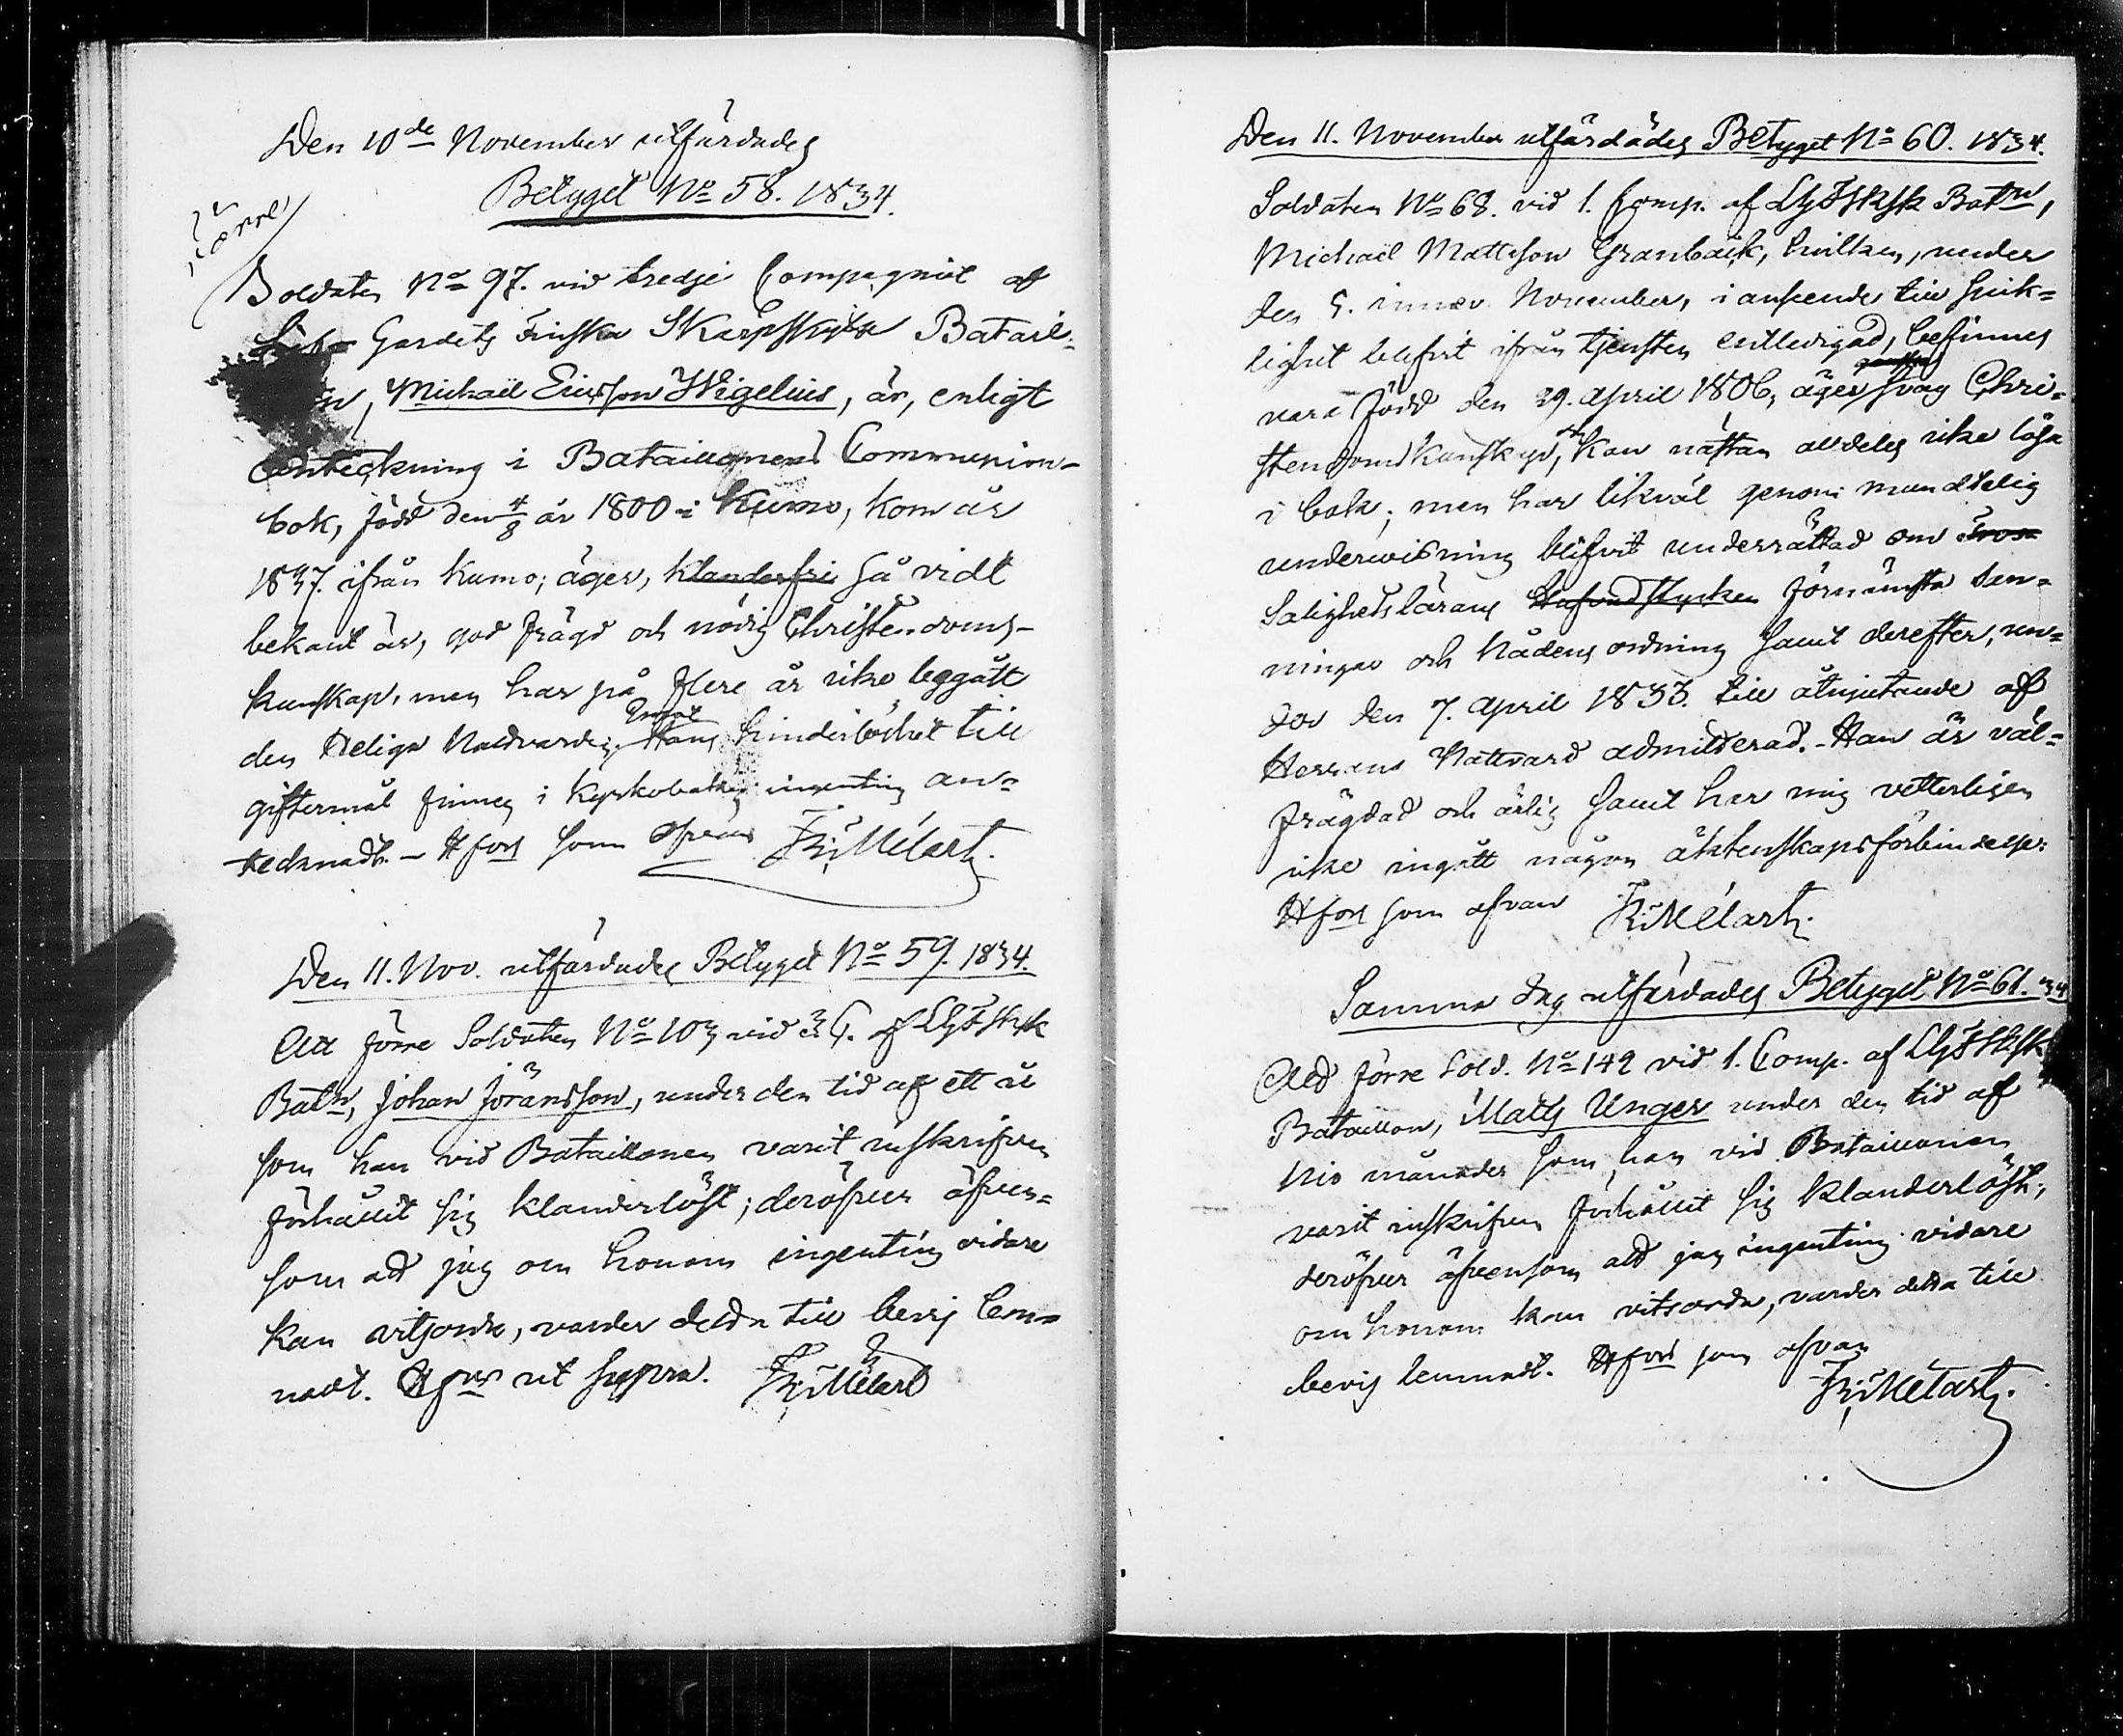 Den 10de November utfärdades
Betyget No 58. 1834.
Förre
Soldaten No 97. vid tredje Compagniet af
Gardets Finska Skarpskytte Batail-
Michaël Ericsson Wigelius, är, enligt
anteckning i Bataillonens Communion-
bok, född den 4/8 år 1800 i Kumo, kom år
ifrån Kumo; äger, klanderfri så vidt
bekant är, god frägd och nödig Christendoms-
kunskap, men har på flere år icke begått
den Heliga Nattvarden. Hans hinderlöshet till
giftermål finnes i Kyrkoboken ingenting an-
tecknadt. – Hfors som ofvan Fr: Mélart.
Den 11. Nov. utfärdades Betyget No 59. 1834.
Att förre Soldaten No 103 vid 3 C. af LGFSksk
Batn, Johan Jöransson, under den tid af ett år
som han vid Bataillonen varit inskrifven
förhållit sig klanderlöst; deröfver äfven-
som att jag om honom ingenting vidare
kan vitsorda, varder detta till bevis lem-
nadt. Hfors ut supra. Fr: Mélart
Den 11. November utfärdades Betyget No 60. 1834.
Soldaten No 68. vid 1. Comp. af LGFSksk Batn,
Michaël Mattsson Granbäck, hvilken, under
den 5. innev. November, i anseende till sjuk-
lighet blifvit ifrån tjensten entledigad, befinnes
vara född den 29. April 1806, äger ganska svag Chri-
stendomskunskap, och kan nästan alldeles icke läsa
i bok; men har likväl genom mundtelig
undervisning blifvit underrättad om Tros
Salighetslärans Hufvudstycken förnämsta san-
ningar och Nådens ordning samt derefter, un-
der den 7. April 1833. till åtnjutande af
Herrans Nattvard admitterad. – Han är väl-
frägdad och ärlig samt har mig vetterligen
icke ingått någon äktenskapsförbindelse.
Hfors som ofvan Fr: Mélart.
Samma dag utfärdades Betyget No 61. 34
Att förre Sold. No 142 vid 1. Comp. af LGFSksk
Bataillon, Matts Unger under den tid af
nio månader som han vid Bataillonen
varit inskrifven förhållit sig klanderlöst;
deröfver äfvensom att jag ingenting vidare
om honom kan vitsorda, varder detta till
bevis lemnadt. Hfors som ofvan
Fr: Mélart.